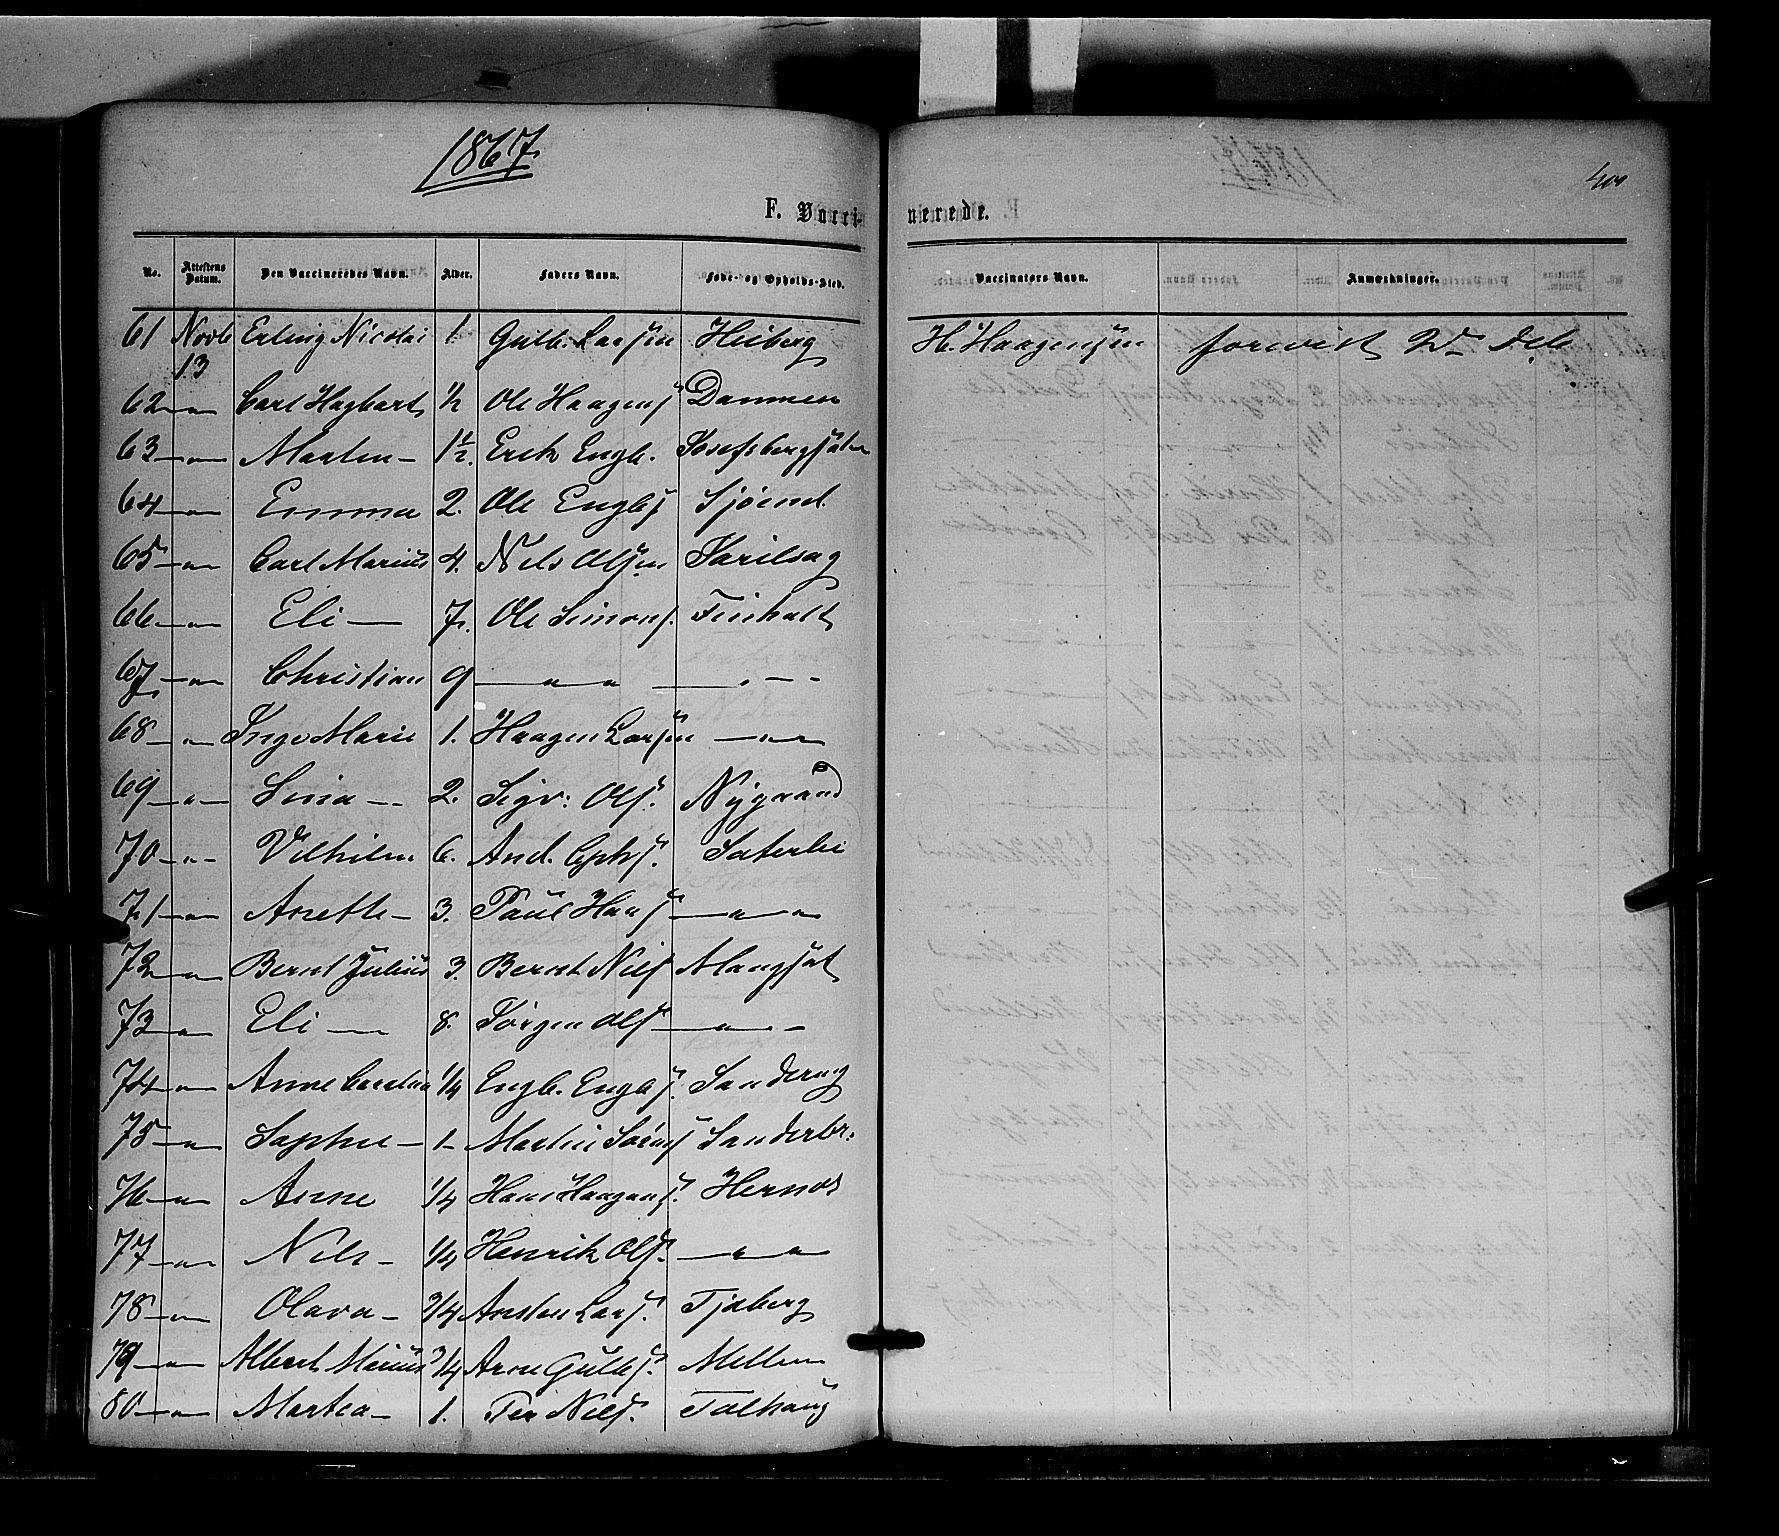 1867
409
F. Vacci- nerede.
No. Attestens Datum. Den Vaccineredes Navn. Alder. Faders Navn. Føde- og Opholds-Sted. Vaccinators Navn. Anmærkninger.
61 Novb 13 Erling Nicolai 1. Gulb. Larsen Heiberg H. Haagensen forevist Dec.
62 -"- Carl Hagbart ½ Ole Haagens Dammen
63 -"- Marten - 1½. Erik Engb. Josefsbergsæt
64 -"- Emma 2. Ole Engbs
65 -"- Carl Marius 4. Nels Olsen
66 -"- Eli - 7. Ole Simons. Finholt
67 -"- Christian 9 -"- " -"-
68 -"- Inga Marie 1. Haagen Larsen -"-
69 -"- Lina - 2. Sigv: Ols. Nÿgaard
70 -"- Vilhelm 6. And. Cphs. Saterlie
71 -"- Anette - 3. Paul Hans -"-
72 -"- Bernt Julius 3. Bernt Niels Mangsæt
73 -"- Eli - 8. Jørgen Ols -"-
74 -"- Anne Caroline 1/4 Engb. Engbs. Sanderug
75 -"- Sophie - 1 - Martin Sørens Sanderbr:
76 -"- Anne 1/4 Hans Haagens. Hernæs
77 -"- Nils - 1/4 Henrik Ols. -"-
78 -"- Olava - 3/4 Ansten Lars. Tjaberg
79 -"- Albert Marius 3/4 Arne Gulbs. Mellem
80 -"- Martea - 1. Per Niels. Tolhaug